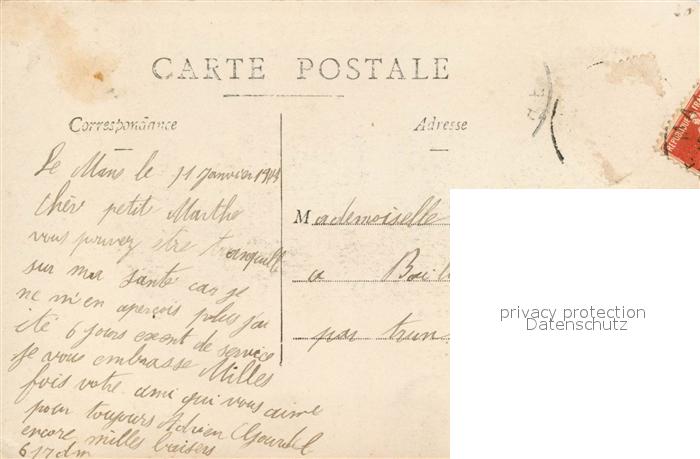 CARTE POSTALE
Correspondance
Adresse
Le Mans le 11 Janvier 19
Chèr petit Marthe
vous pouvez etre tranquille
sur ma santé car je
ne m'en aperçois plus j'ai
ité 6 jours exent de service
Je vous embrasse Milles
fois votre ami qui vous aime
pour toujours Adrien
encore milles baisers
Mademoiselle
a
par
privacy protection
Datenschutz